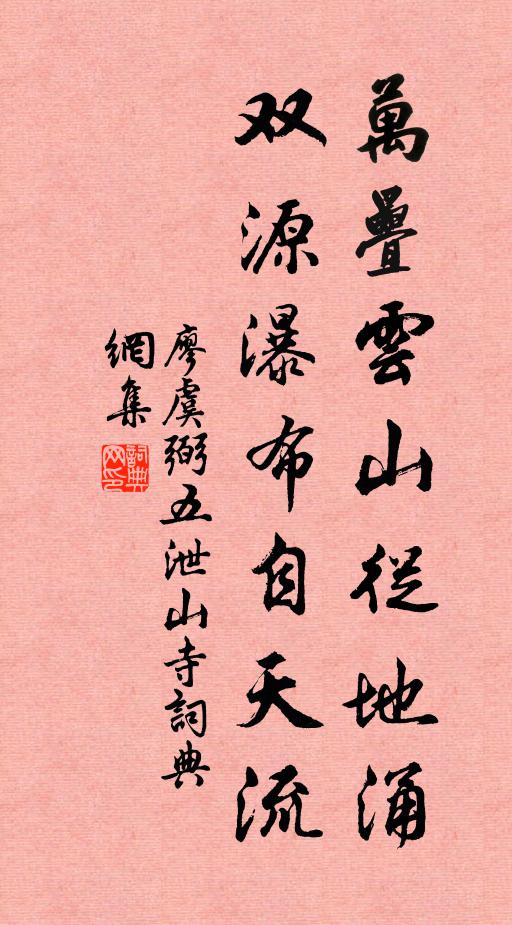 萬疊雲山從地涌
双源瀑布自天流
廖虞弼五泄山寺詞典
網集
詞典网印